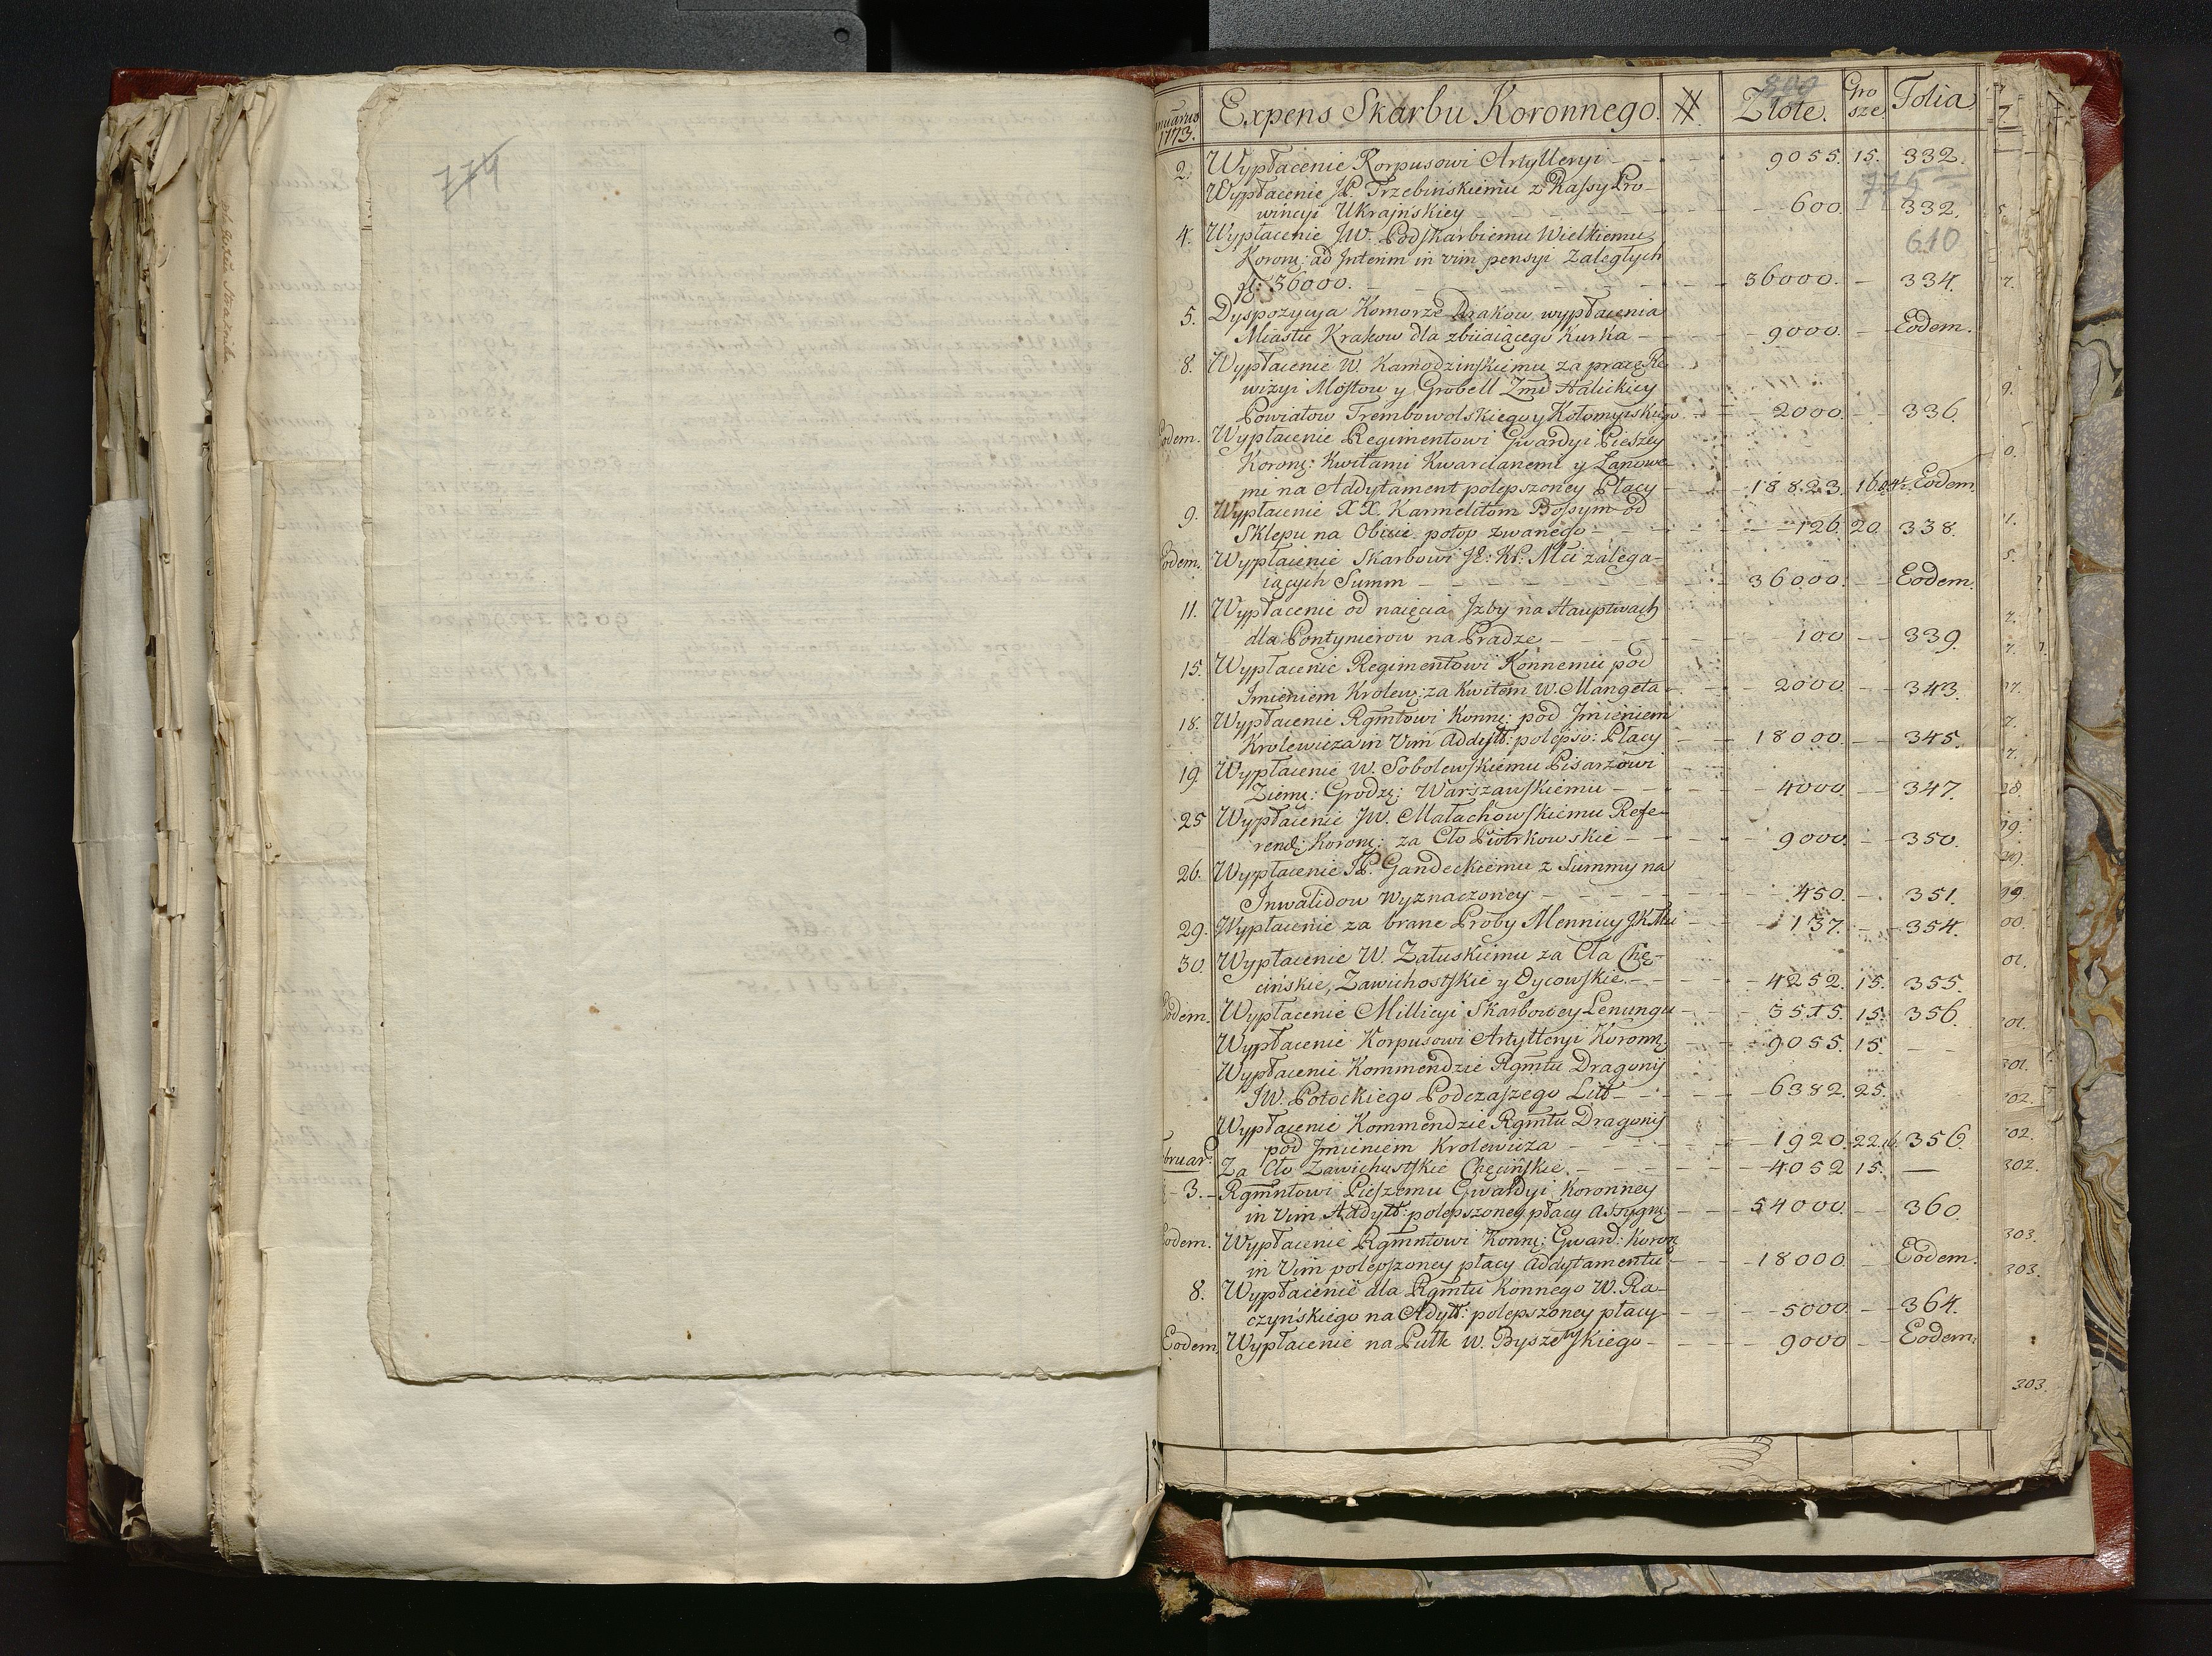 774
Expens Skarbu Koronnego. # Złote. Gro sze Folia
1773. 809
2. Wypłacenie Korpusowi Artylleryi - 9055. 15. 332.
Wypłacenie JP. Trzebińskiemu z Kassy Pro- 775
wincyi Ukraińskiey - 600. - 332.
4. Wypłacenie JW. Podskarbiemu Wielkiemu 610
Koron: ad Interim in vim pensyi zaległych
fl: 36000. - 36000. - 334.
5. Dyspozycya Komorze Krakow. wypłacenia
Miastu Krakow dla zbiiaiącego Kurka - 9000. - Eodem.
8. Wypłacenie W. Karnodzinskiemu za pracę Re-
wizyi Mostow y Grobell Zmi Halickiey
Powiatow Trembowolskiego y Kołomyiskiego - 2000. - 336.
Eodem. Wypłacenie Regimentowi Gwardyi Pieszey
Koron: Kwitami Kwarcianemi y Łanowe-
mi na Addytament polepszoney Płacy - 18823. 16. Eodem.
9. Wypłacenie XX. Karmelitom Bossym od
Sklepu na Obicie potop zwanego - 126. 20. 338.
Eodem. Wypłacenie Skarbowi JE: Kr: Mci zalega-
iących Summ - 36000. - Eodem
11. Wypłacenie od naięcia Izby na Hauptwach
dla Pontynierow na Pradze - 100 - 339.
15. Wypłacenie Regimentowi Konnemu pod
Imieniem Krolew: za Kwitem W. Mangeta - 2000. - 343.
18. Wypłacenie Rgmtowi Konn: pod Imieniem
Krolewicza in Vim Addytt: polepszo: Płacy - 18000. - 345.
19. Wypłacenie W. Sobolewskiemu Pisarzowi
Ziem: Grodz: Warszawskiemu - 4000. - 347.
25 Wypłacenie JW. Małachowskiemu Refe-
rend: Koron: za Cło Piotrkowskie - 9000. - 350.
26. Wypłacenie JP. Gandeckiemu z Summy na
Inwalidow wyznaczoney - 450. - 351.
29. Wypłacenie za brane Proby Mennicy JKMci - 137. - 354.
30. Wypłacenie W. Załuskiemu za Cła Chę-
cińskie, Zawichostskie y Oycowskie. - 4252. 15. 355.
Eodem. Wypłacenie Millicyi Skarbowey Lenungu - 3515. 15. 356.
Wypłacenie Korpusowi Artylleryi Koronn: - 9055. 15. -
Wypłacenie Kommendzie Rgmtu Dragonij
JW. Potockiego Podczaszego Litt - 6382. 25.
Wypłacenie Kommendzie Rgmtu Dragonij
pod Imieniem Krolewicza - 1920. 22. 356.
bruar: Za Cło Zawichostskie Chęcińskie. - 4052 15. -
3. - Rgmntowi Pieszemu Gwardyi Koronney
in Vim Addytt: polepszoney płacy Assygn: - 54000. - 360
Eodem. Wypłacenie Rgmntowi Konn: Gward: Koron
in Vim polepszoney płacy addytamentu - 18000. - Eodem.
8. Wypłacenie dla Rgmtu Konnego W. Ra-
czyńskiego na Adytt: polepszoney płacy - 5000. - 364.
Eodem. Wypłacenie na Pułk W. Byszewskiego - 9000 - Eodem.
303.